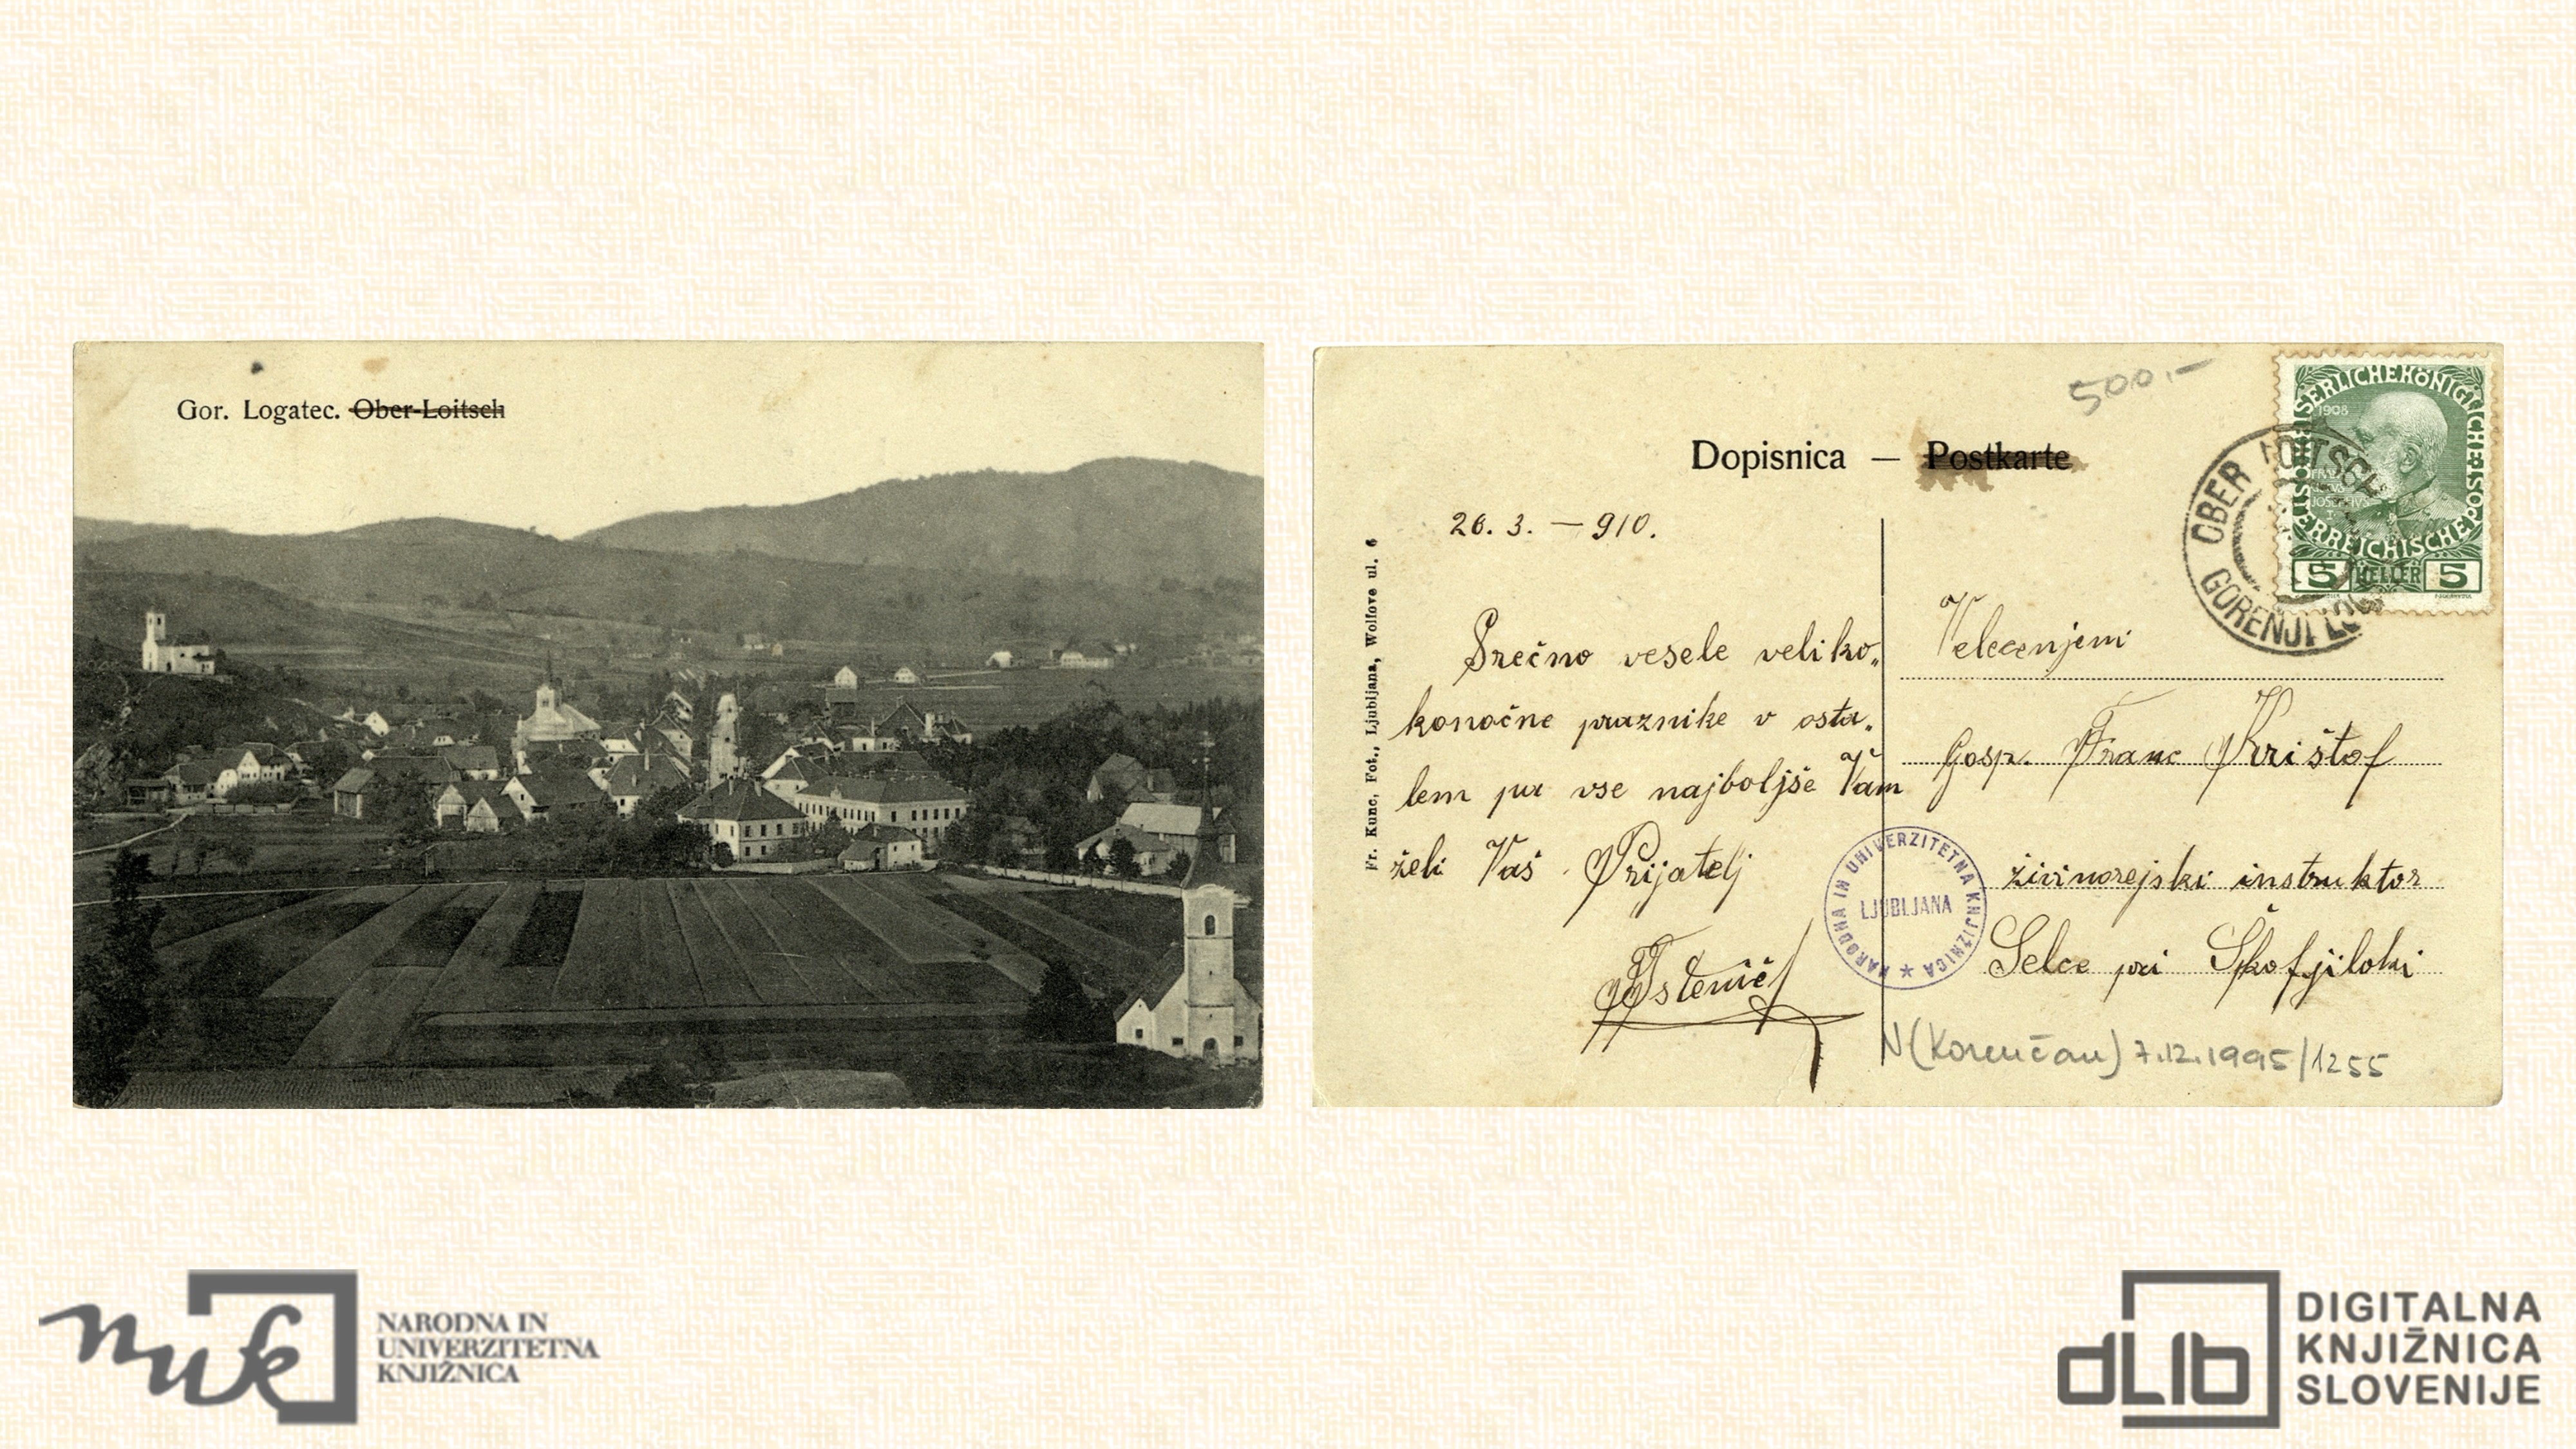 Gor. Logatec. Ober-Loitsch
500.-
Dopisnica — Postkarte
KAISERLICHE KÖNIGLICHE ÖSTERREICHISCHE POST
1908
5 HELLER 5
OBER LOITSCH
GORENJI LOG
26. 3. — 910.
Srečno vesele veliko„
konočne praznike v osta„
lem pa vse najboljše Vam
želi Vaš Prijatelj
Istenič
Fr. Kunc, Fot., Ljubljana, Wolfove ul. 6
Velecenjeni
Gosp. Franc Krištof
živinorejski instruktor
Selce pri Škofjiloki
NARODNA IN UNIVERZITETNA KNJIŽNICA
LJUBLJANA
N (Korenčan) 7.12.1995/1255
nuk
NARODNA IN
UNIVERZITETNA
KNJIŽNICA
dLib
DIGITALNA
KNJIŽNICA
SLOVENIJE